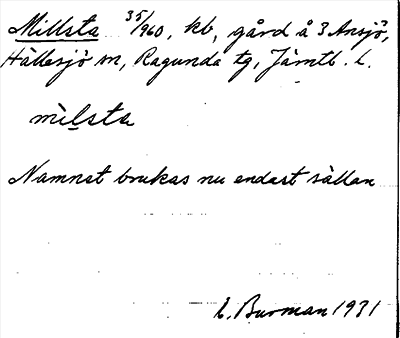 Millsta 35/960, kb, gård å 3 Ansjö,
Hällesjö sn, Ragunda tg, Jämtl. l.
mìlsta
Namnet brukas nu endast sällan
L. Burman 1931